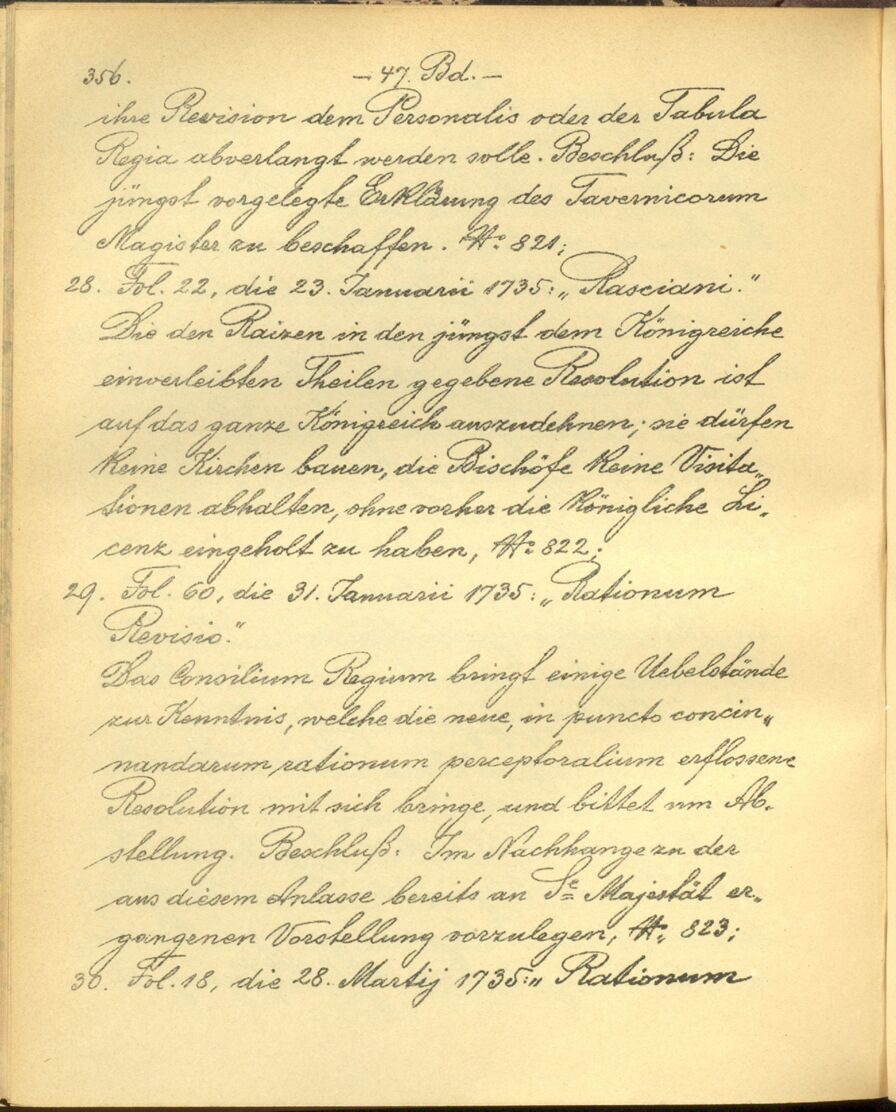 356.
— 47. Bd. —
ihre Revision dem Personalis oder der Tabula
Regia abverlangt werden solle. Beschluß: Die
jüngst vorgelegte Erklärung des Tavernicorum
Magister zu beschaffen. No 821;
28. Fol. 22, die 23. Januarii 1735: „Rasciani.“
Die den Raizen in den jüngst dem Königreiche
einverleibten Theilen gegebene Resolution ist
auf das ganze Königreich auszudehnen; sie dürfen
keine Kirchen bauen, die Bischöfe keine Visita„
tionen abhalten, ohne vorher die königliche Li„
cenz eingeholt zu haben, No 822;
29. Fol. 60, die 31. Januarii 1735: „Rationum
Revisio.“
Das Consilium Regium bringt einige Uebelstände
zur Kenntnis, welche die neue, in puncto concin„
nandarum rationum perceptoralium erflossene
Resolution mit sich bringe, und bittet um Ab„
stellung. Beschluß: Im Nachhange zu der
aus diesem Anlasse bereits an Se Majestät er„
gangenen Vorstellung vorzulegen, No 823;
30. Fol. 18, die 28. Martij 1735: „Rationum